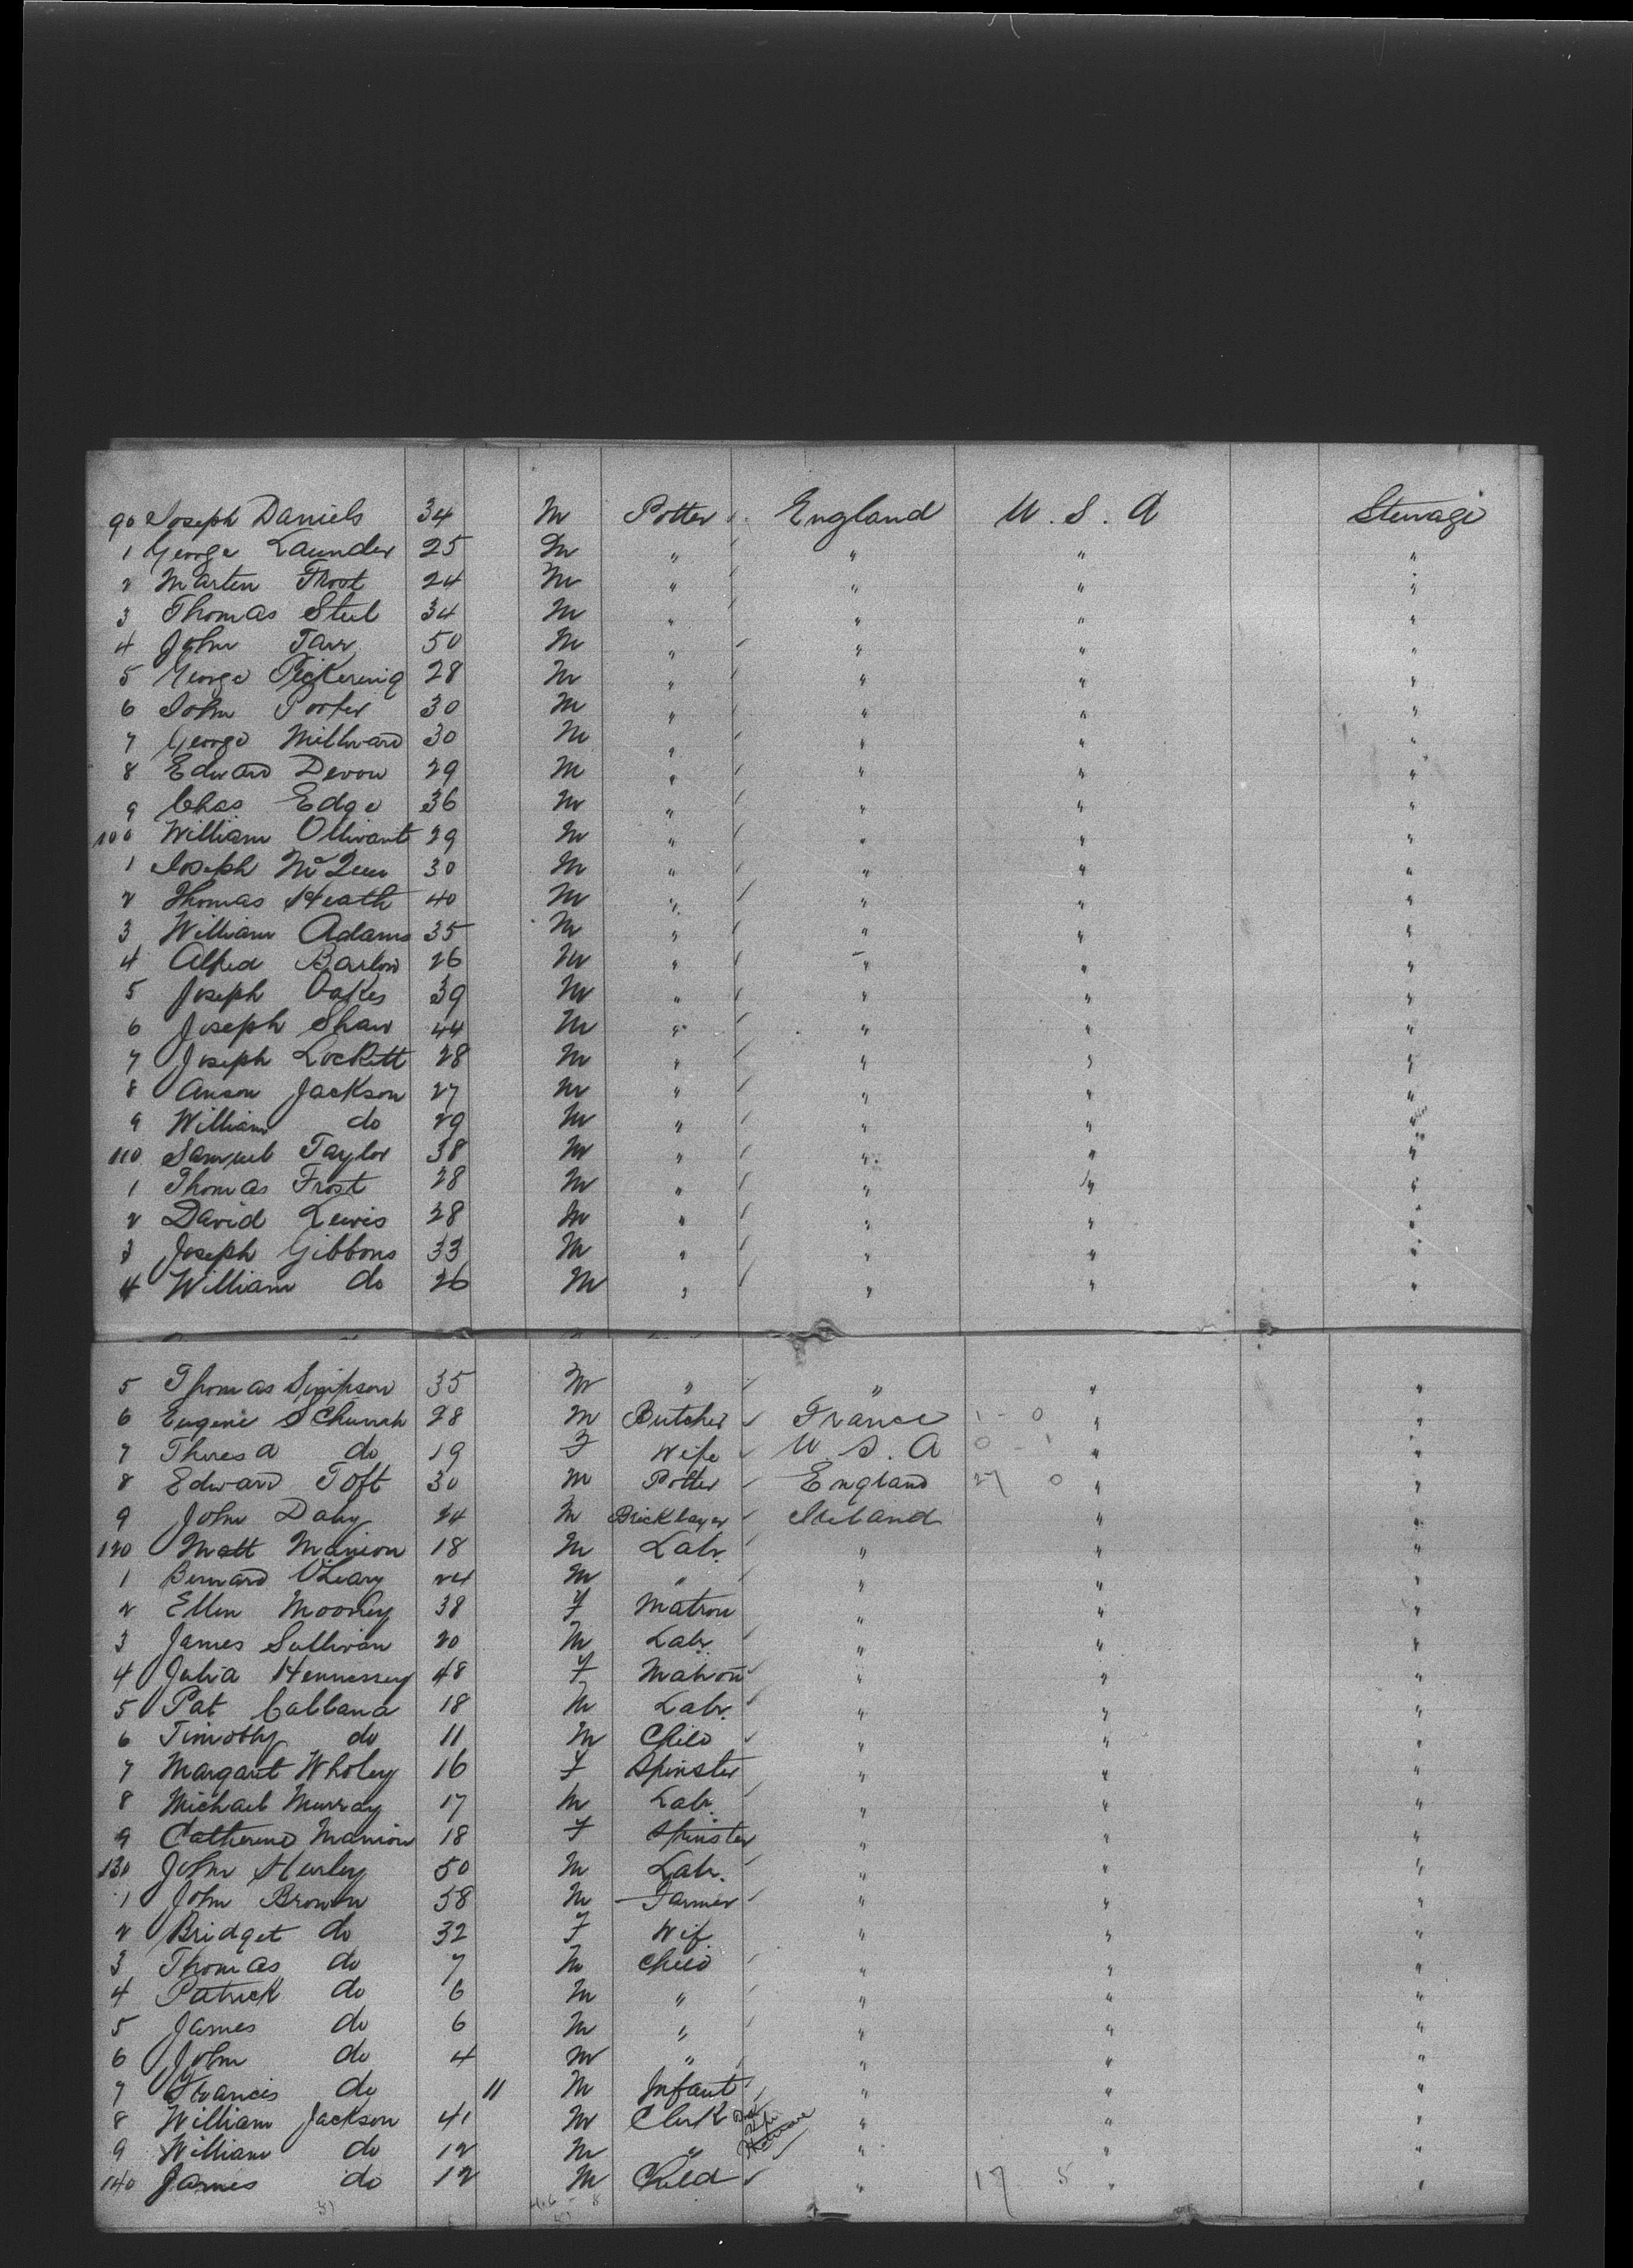 90 Joseph Daniels 34 M Potter England U.S.A Steerage
1 George Launder 25 M " " " "
2 Marten Frost 24 M " " " "
3 Thomas Steel 34 M " " " "
4 John Tarr 50 M " " " "
5 George Pickering 28 M " " " "
6 John Porter 30 M " " " "
7 George Millward 30 M " " " "
8 Edward Devon 29 M " " " "
9 Chas Edge 36 M " " " "
100 William Ollivant 29 M " " " "
1 Joseph 30 M " " " "
2 Thomas Heath 40 M " " " "
3 William Adams 35 M " " " "
4 Alfred Barlow 26 M " " " "
5 Joseph Oakes 39 M " " " "
6 Joseph Shaw 44 M " " " "
7 Joseph Lockett 28 M " " " "
8 Anson Jackson 27 M " " " "
9 William do 29 M " " " "
110 Samuel Taylor 38 M " " " "
1 Thomas Frost 28 M " " " "
2 David Lewis 28 M " " " "
3 Joseph Gibbons 33 M " " " "
4 William do 26 M " " " "
5 Thomas Simpson 35 M " " " "
6 Eugene 28 M Butcher France 1 - 0 " "
7 Theresa do 19 F Wife U.S.A 0 - 1 " "
8 Edward Toft 30 M Potter England 27 0 " "
9 John Daly 24 M Bricklayer Ireland " "
120 Matt Manion 18 M Labr. " " "
1 Bernard O'Leary 24 M " " " "
2 Ellen Mooney 38 F Matron " " "
3 James Sullivan 20 M Labr " " "
4 Julia Hennessey 48 F Matron " " "
5 Pat 18 M Labr. " " "
6 Timothy do 11 M Child " " "
7 Margaret Wholey 16 F Spinster " " "
8 Michael Murray 17 M Labr. " " "
9 Catherine Manion 18 F Spinster " " "
130 John Hurley 50 M Labr. " " "
1 John Brown 38 M Farmer " " "
2 Bridget do 32 F Wif " " "
3 Thomas do 7 M Child " " "
4 Patrick do 6 M " " " "
5 James do 6 M " " " "
6 John do 4 M " " " "
7 Francis do 11 M Infant " " "
8 William Jackson 41 M Clerk " " "
9 William do 12 M " " " "
140 James do 12 M Child " 17 5 " "